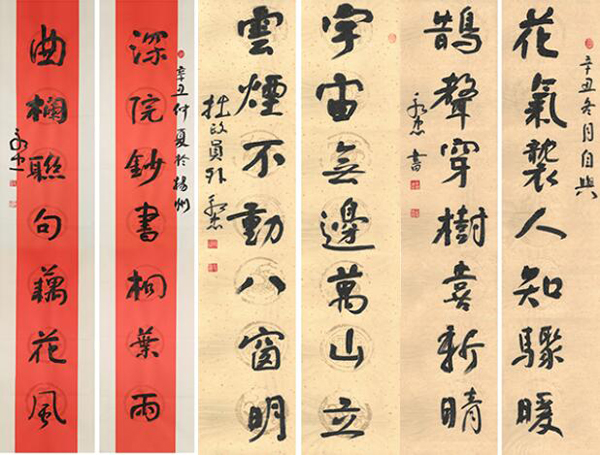 辛丑冬月自興
花氣襲人知驟暖
鵲聲穿樹喜新晴
書
宇宙無邊萬山立
雲煙不動八窗明
拙政員外
辛丑仲夏於揚州
深院鈔書桐葉雨
曲欄聯句藕花風